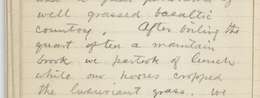 well grassed basaltic
country. After boiling the
quart often a mountain
brook we partook of lunch
while our horses cropped
the luxuriant grass. We